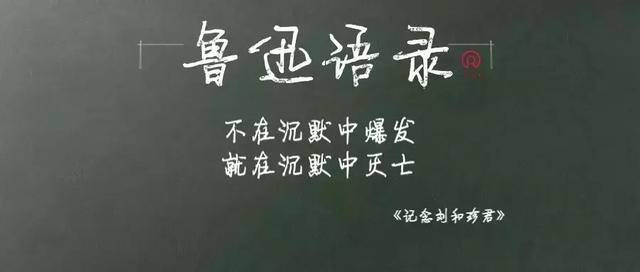 鲁迅语录
不在沉默中爆发
就在沉默中灭亡
《记念刘和珍君》